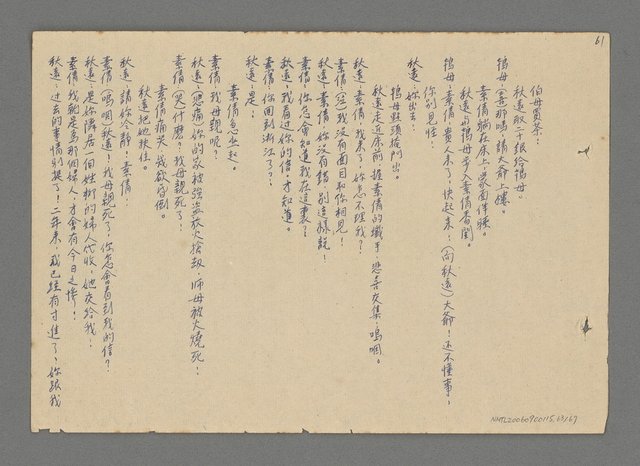 61
伯母賣茶：
秋遠取二十銀給鴇母。
鴇母（喜）那嗎，請大爺上樓。
素倩躺在床上，蒙面伴睡。
秋遠與鴇母步入素倩香閨。
鴇母：素倩，貴人來了，快起來！（向秋遠）大爺！还不懂事，
你別見怪。
秋遠：妳出去。
鴇母點頭掩門出。
秋遠走近床前，握素倩的纖手，悲喜交集，嗚咽。
秋遠：素倩！我來了，妳怎不理我？
素倩（泣）我沒有面目和你相見！
秋遠：素倩，妳沒有錯，別這樣說！
素倩：你怎会知道我在這裏？
秋遠：我看过妳的信，才知道。
素倩：你回到浙江了？
秋遠：是！
素倩忽坐起。
素倩：我母親呢？
秋遠（悲痛）你的家被強盜放火搶刼，師母被火燒死！
素倩（哭）什麼？我母親死了！
素倩痛哭，幾欲昏倒。
秋遠把她扶住。
秋遠：請妳冷靜，素倩！
素倩（嗚咽）秋遠！我母親死了，你怎會看到我的信？
秋遠：是妳隣居一個姓靳的婦人代收，她交給我！
素倩：我就是害那個婦人，才會有今日之慘！
秋遠：过去的事情別提了！二年來，我已經有寸進了！妳跟我
NMTL20060900115.63/69